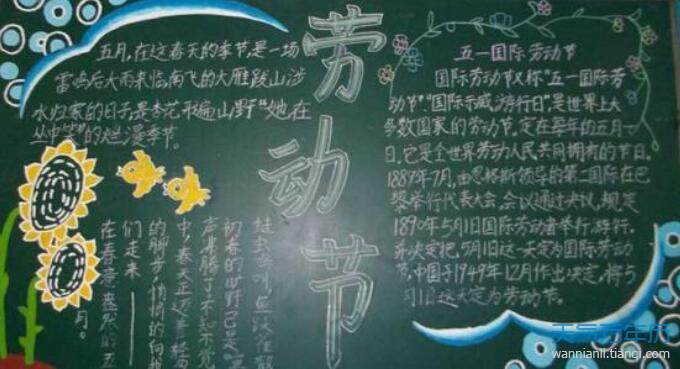 五月,在这春天的季节,是一场
雷鸣后大雨来临,南飞的大雁跋山涉
水归家的日子,是杏花形遍山野"她在
丛中笑"的烂漫季节。
劳动节
五一国际劳动节
国际劳动节又称"五一国际劳
动节""国际示威游行日",是世界上大
多数国家的劳动节。定在每年的五月一
日。它是全世界劳动人民共同拥有的节日。
1889年7月,由恩格斯领导的第二国际在巴
黎举行代表大会,会议通过决议,规定
1890年5月1日国际劳动者举行游行,
并决定把5月1日这一天定为国际劳动
节,中国于1949年12月作出决定,将5
月1日这天定为劳动节。
初春的山野已是
声沸腾了不知觉
中,春天正迈着轻盈
的脚步悄悄的向我
们走来
在春意
月。
天气万年历
wannianli.tianqi.com